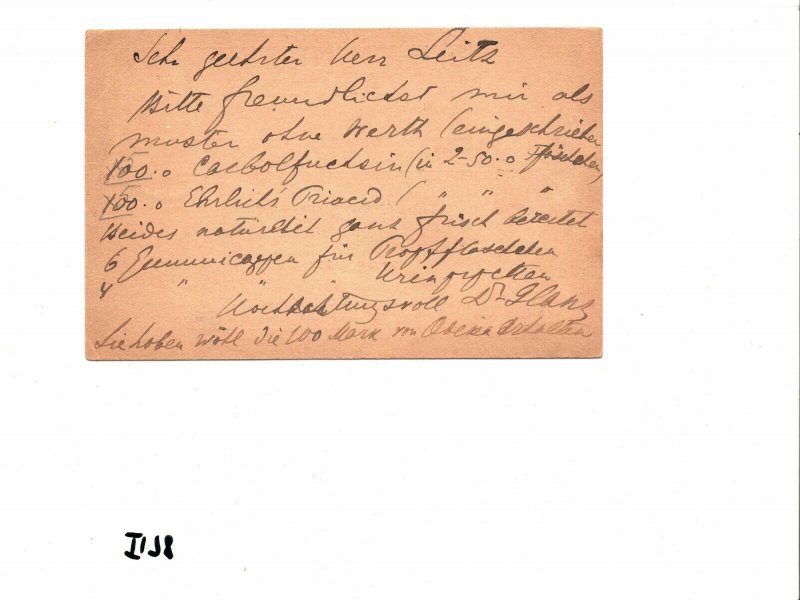 Sehr geehrter Herr Leitz
Bitte freundlichst mir als
muster ohne Werth (eingeschrieben
100.0 Carbolfuchsin (in 2-50.0 Fläschchen)
100.0 Ehrlichs Triacid ( " " "
Beides natürlich ganz frisch bereitet
6 Gummicappen für Tropfflaschchen
4 " "
Hochachtungsvoll Dr
Sie haben wohl die 100 Mark von erhalten
II J8